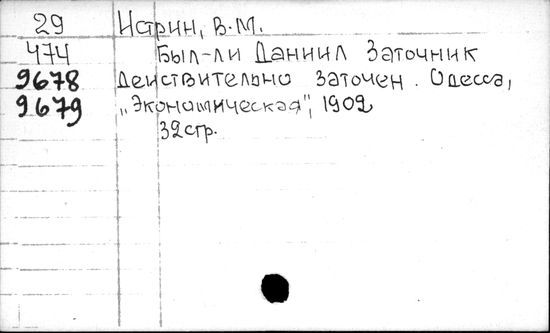 29 Истрин, В.М.
474 Был-ли Даниил Заточник
9678 действительно заточен. Одесса,
9679 „Экономическая", 1902
32стр.